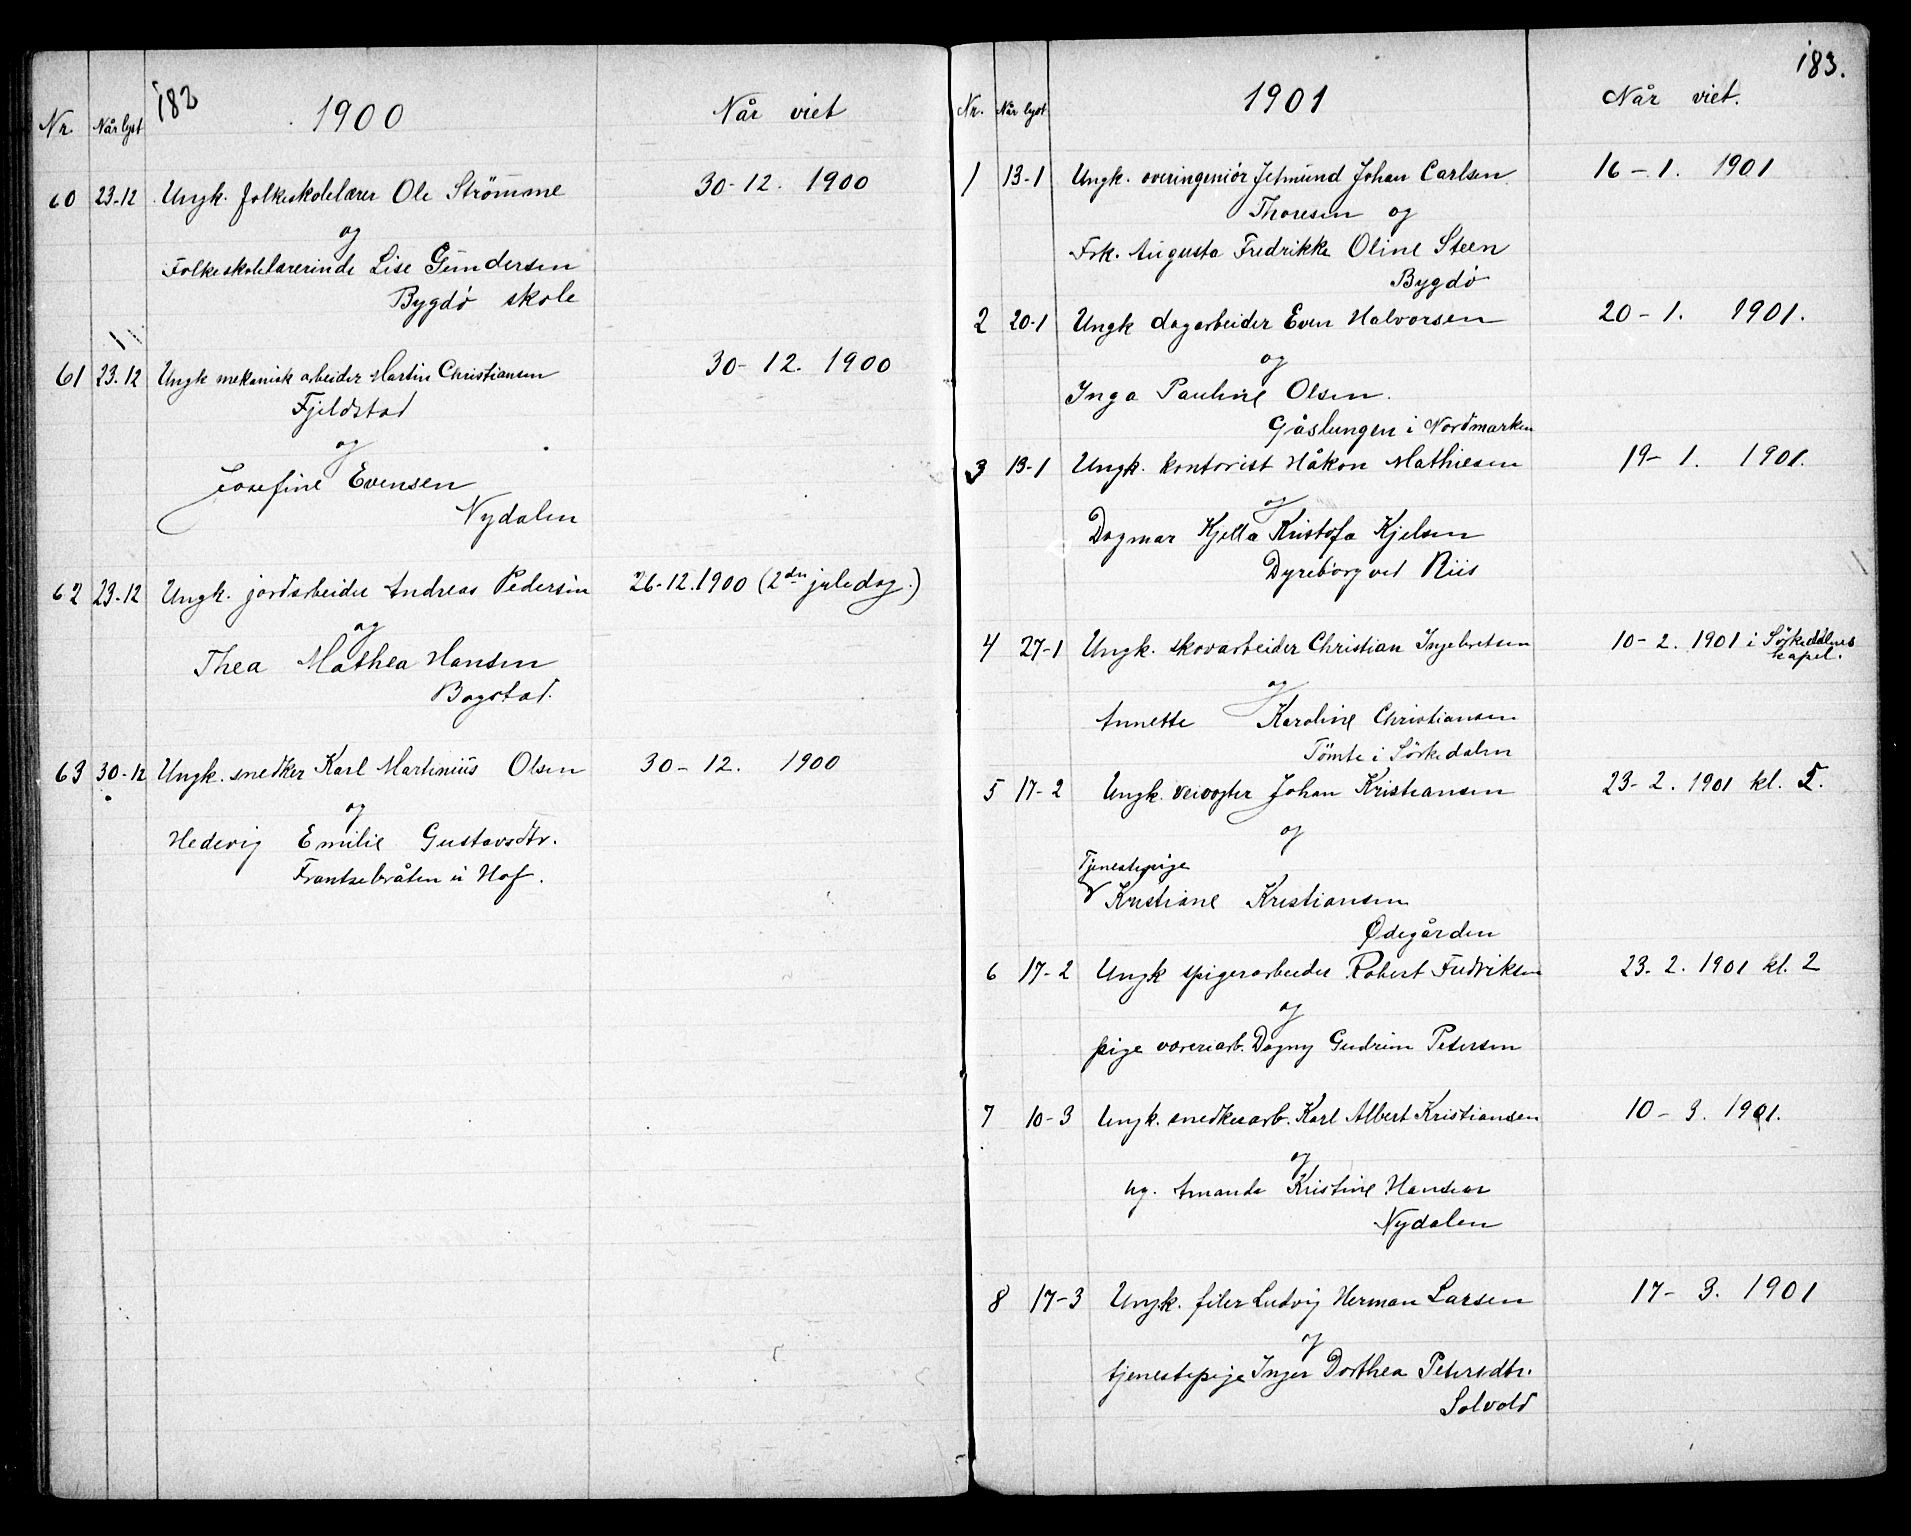 182
Nr. Når lyst 1900 Når viet
60 23-12 Ungk. folkeskolelærer Ole Strömme 30-12. 1900
og
Folkeskolelærerinde Lise Gundersen
Bygdö skole
61 23.12 Ungk mekanisk arbeider Martin Christiansen 30-12. 1900
Fjeldstad
og
Josefine Evensen
Nydalen
62 23-12 Ungk. jordarbeider Andreas Pedersen 26-12.1900 (2den juledag.)
og
Thea Mathea Hansen
Bogstad.
63 30-12 Ungk. snedker Karl Martinius Olsen 30-12. 1900
og
Hedevig Emilie Gustavsdtr.
Frantsebråten i Hof.
183.
Nr. Når lyst 1901 Når viet.
1 13-1 Ungk. overingeniör Jetmund Johan Carlsen 16-1. 1901
Thoresen og
Frk. Augusta Fredrikke Oline Steen
Bygdö
2 20-1 Ungk dagarbeider Even Halvorsen 20-1. 1901.
og
Inga Pauline Olsen.
Gåslungen i Nordmarken
3 13-1 Ungk. kontorist Håkon Mathiesen 19-1. 1901.
og
Dagmar Kjella Kristofa Kjelsen
Dyreborg ved Riis
4 27-1 Ungk. skovarbeider Christian Ingebretsen 10-2. 1901 i Sörkedalens kapel.
og
Annette Karoline Christiansen
Tömte i Sörkedalen
5 17-2 Ungk. veivogter Johan Kristiansen 23-2. 1901 kl. 5.
og
Tjenestepige
Kristiane Kristiansen
Ødegården
6 17-2 Ungk spigerarbeider Robert Fredriksen 23-2. 1901 kl. 2
og
pige væveriarb. Dagny Gudrun Petersen
7 10-3 Ungk. snedkerarb. Karl Albert Kristiansen 10-3. 1901.
og
Amanda Kristine Hansen
Nydalen
8 17-3 Ungk. filer Ludvig Herman Larsen 17-3. 1901
og
tjenestepige Inger Dorthea Petersdtr.
Solvold